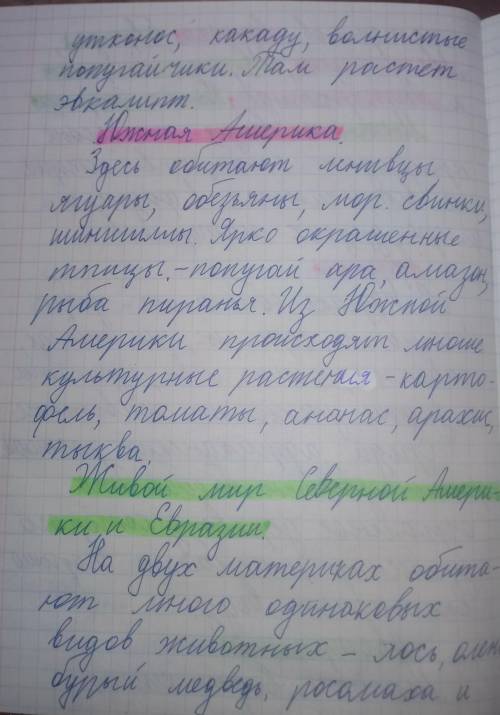 утконос, какаду, волнистые
попугайчики. Там растет
эвкалипт.
Южная Америка.
Здесь обитают ленивцы,
ягуары, обезьяны, мор. свинки,
шиншиллы. Ярко окрашенные
птицы. - попугай ара, амазон,
рыба пиранья. Из Южной
Америки происходят многие
культурные растения - карто-
фель, томаты, ананас, арахис,
тыква.
Живой мир Северной Амери-
ки и Евразии.
На двух материках обита-
ют много одинаковых
видов животных - лось, олень
бурый медведь, росомаха и